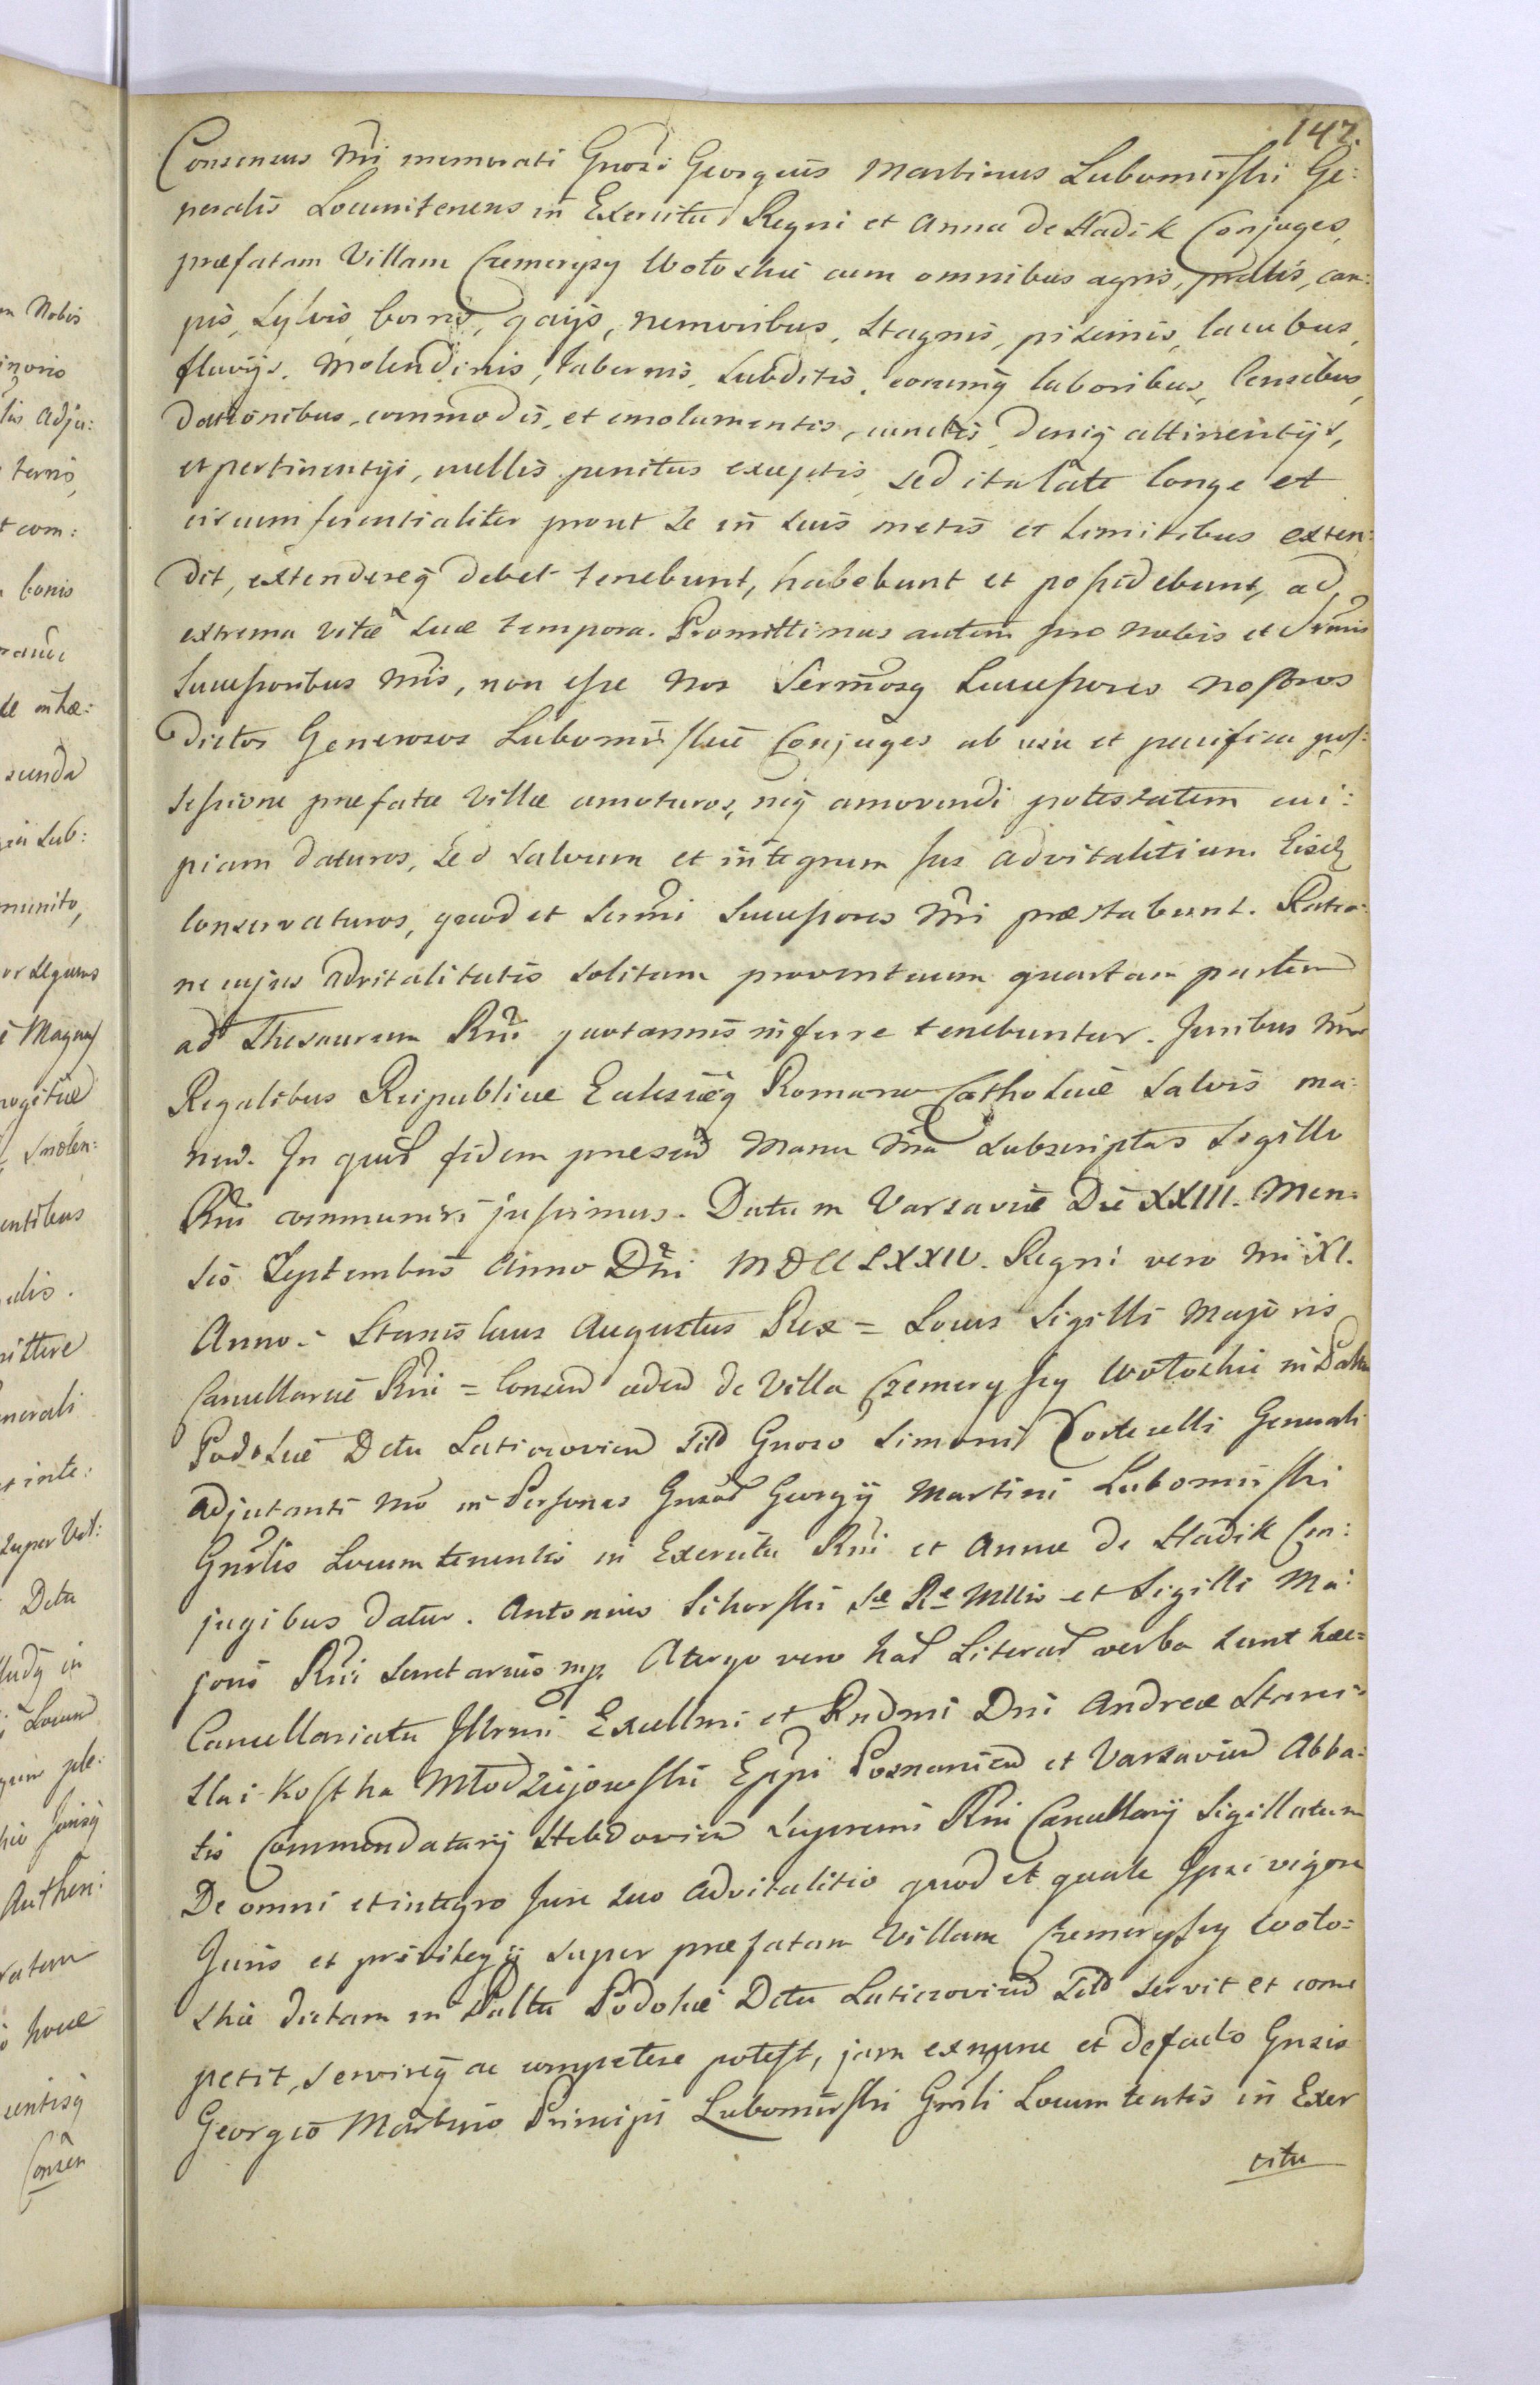 147.
Consensus Nri memorati Gnosi Georgius Martinus Lubomirski Ge:
neralis Locumtenens in Exercitu Regni et Anna de Hadik Conjuges,
præfatam Villam Czemerysy Wołoskie cum omnibus agris, pratis, cam:
pis, sylvis, borris, gaijs, nemoribus, stagnis, piscinis, lacubus,
fluvijs, Molendinis, tabernis, subditis, eorumq laboribus, Censibus,
dationibus, commodis, et emolumentis, cunctis deniq attinentijs,
et pertinentijs, nullis penitus exceptis sed ita late longe et
circumferentialiter prout se in suis metis et limitibus exten:
dit, extendereq debet tenebunt, habebunt et possidebunt, ad
extrema vitæ suæ tempora. Promittimus autem pro Nobis et Srmis
Successoribus Nris, non esse Nos Sermosq Successores nostros
dictos Generosos Lubomirskie Conjuges ab usu et pacifica pos:
sessione præfatæ Villæ amoturos, neq amovendi potestatem cui:
piam daturos, sed salvum et integrum Jus advitalitium Eisd
conservaturos, quod et Sermi Successores Nri præstabunt. Ratio:
ne cujus advitalitatis solitam proventuum quartam partem
ad Thesaurum Rni quotannis inferre tenebuntur. Juribus Nris
Regalibus Reipublicæ Ecclesiæq Romano Catholicæ salvis ma:
nen. In quor fidem præsen Manu Nra subscriptas Sigillo
Rni communiri jussimus. Datum Varsaviæ Die XXIII. Men:
sis Septembris Anno Dni MDCCLXXIV. Regni vero Nri XI.
Anno. Stanislaus Augustus Rex = Locus Sigilli Majoris
Cancellariæ Rni = Consen aden de Villa Czemerysy Wołoskie in Paltu
Podoliæ Dctu Laticzovien Sito Gnoso Simoni Corticelli Generali
adjutanti Nro in Personas Gnsor Georgij Martini Lubomirski
Gnrlis Locumtenentis in Exercitu Rni et Annæ de Hadik Con:
jugibus datur. Antonius Sikorski Sæ Ræ Mttis et Sigilli Ma:
joris Rni Secretarius mp. A tergo vero har Literar verba sunt hæc =
Cancellariatu Illrmi Excellmi et Rndmi Dni Andreæ Stanis:
slai Kostka Młodziejowski Eppi Posnanien et Varsavien Abba:
tis Commendatarij Hebdovien Supremi Rni Cancellarij Sigillatum
De omni et integro Jure suo advitalitio quod et quale Ipsi vigore
Juris et privilegij super præfatam Villam Czemerysy Woło:
skie dictam in Paltu Podoliæ Dctu Laticzovien Sito servit et com
petit, servireq ac competere potest, jam ex nunc et de facto Gnsis
Georgio Martino Principi Lubomirski Gnrli Locumtentis in Exer
citu